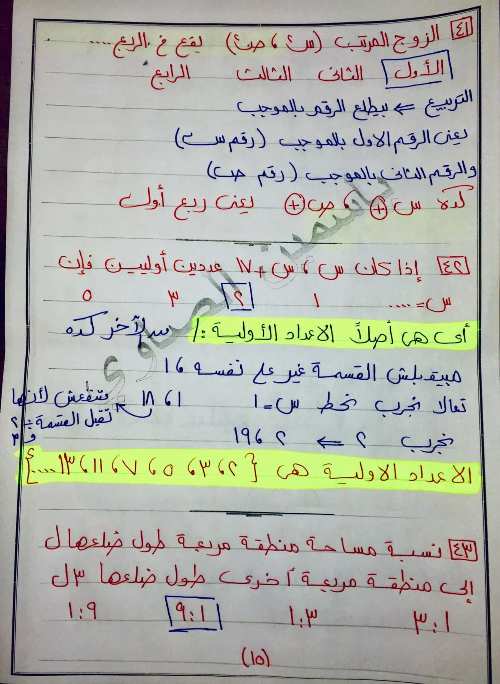 ٤١ الزوج المرتب (س٢، ص٢) يقع في الربع ....
الأول الثانى الثالث الرابع
التربيع ⇐ بيطلع الرقم بالموجب
يعنى الرقم الاول بالموجب (رقم س)
والرقم الثانى بالموجب (رقم ص)
كده س + ، ص + يعنى ربع أول
٤٢ إذا كان س ، س + ١٧ عددين أوليين فإن
س = .... ١ ٢ ٣ ٥
أى هى أصلاً الاعداد الأولية :/ سالآخر كده
مبيقبلش القسمة غير على نفسه ١٦
تعالا نجرب نحط س = ١ ١٨ ، ١ متنفعش لأنها
تقبل القسمة ÷ ٢
و ٣
نجرب ٢ ⇐ ٢ ، ١٩
الاعداد الاولية هى {٢، ٣، ٥، ٧، ١١، ١٣، ....}
٤٣ نسبة مساحة منطقة مربعة طول ضلعها ل
إلى منطقة مربعة أخرى طول ضلعها ٣ل
٣:١ ١:٣ ٩:١ ١:٩
(١٥)
ياسمين الصاوي